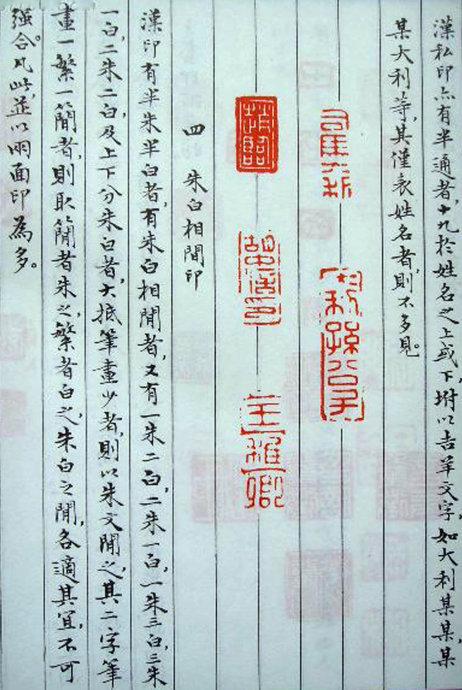 漢私印亦有半通者，十九於姓名之上或下，坿以吉羊文字，如大利某某某
某大利等，其僅表姓名者，則不多見。
王雒卿
四　朱白相閒印
漢印有半朱半白者，有朱白相閒者，又有一朱二白，二朱一白，一朱三白，三朱
一白，二朱二白，及上下分朱白者，大抵筆畫少者，則以朱文閒之，其二字筆
畫一繁一簡者，則取簡者朱之，繁者白之，朱白之閒，各適其宜，不可
强合。凡此，並以兩面印為多。